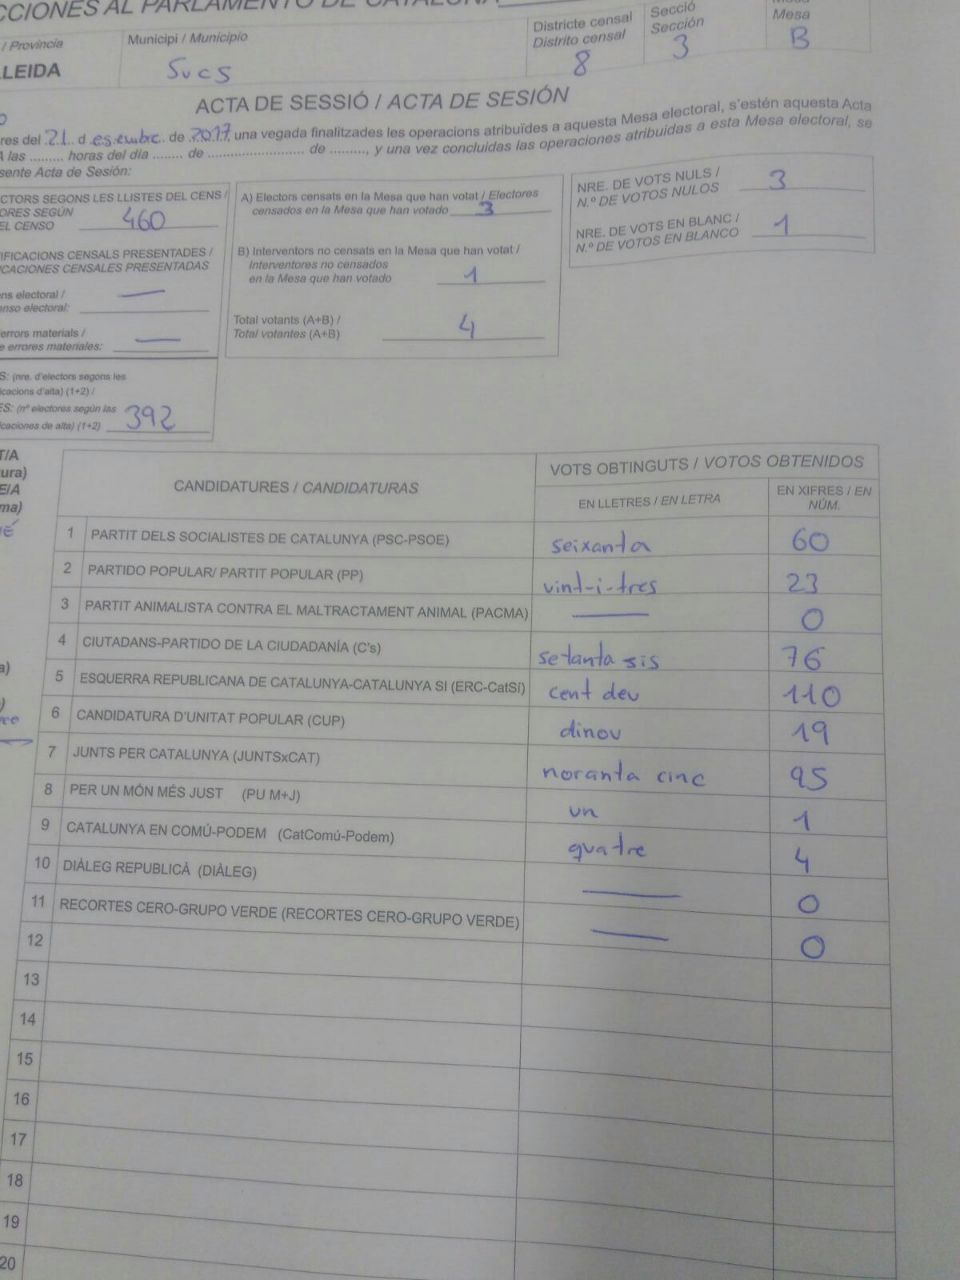 CCIONES AL PARLAMENTO DE CATALUÑA
/ Provincia
LLEIDA
Municipi / Municipio
Sucs
Districte censal
Distrito censal
8
Secció
Sección
3
Mesa
Mesa
B
ACTA DE SESSIÓ / ACTA DE SESIÓN
res del 21 d esembre de 2017, una vegada finalitzades les operacions atribuïdes a aquesta Mesa electoral, s'estén aquesta Acta
A las ......... horas del día ........ de ......................... de ........., y una vez concluidas las operaciones atribuidas a esta Mesa electoral, se
sente Acta de Sesión:
CTORS SEGONS LES LLISTES DEL CENS /
ORES SEGÚN
EL CENSO 460
IFICACIONS CENSALS PRESENTADES /
CACIONES CENSALES PRESENTADAS
ns electoral / —
nso electoral:
errors materials / —
e errores materiales:
S: (nre. d'electors segons les
icacions d'alta) (1+2) /
ES: (nº electores según las
icaciones de alta) (1+2) 392
A) Electors censats en la Mesa que han votat / Electores
censados en la Mesa que han votado 3
B) Interventors no censats en la Mesa que han votat /
Interventores no censados
en la Mesa que han votado 1
Total votants (A+B) /
Total votantes (A+B) 4
NRE. DE VOTS NULS /
N.º DE VOTOS NULOS 3
NRE. DE VOTS EN BLANC /
N.º DE VOTOS EN BLANCO 1
T/A
ura)
E/A
ma)
CANDIDATURES / CANDIDATURAS
VOTS OBTINGUTS / VOTOS OBTENIDOS
EN LLETRES / EN LETRA
EN XIFRES / EN
NÚM.
1 PARTIT DELS SOCIALISTES DE CATALUNYA (PSC-PSOE) seixanta 60
2 PARTIDO POPULAR/ PARTIT POPULAR (PP) vint-i-tres 23
3 PARTIT ANIMALISTA CONTRA EL MALTRACTAMENT ANIMAL (PACMA) — 0
4 CIUTADANS-PARTIDO DE LA CIUDADANÍA (C's) setanta sis 76
5 ESQUERRA REPUBLICANA DE CATALUNYA-CATALUNYA SI (ERC-CatSí) cent deu 110
6 CANDIDATURA D'UNITAT POPULAR (CUP) dinou 19
7 JUNTS PER CATALUNYA (JUNTSxCAT) noranta cinc 95
8 PER UN MÓN MÉS JUST (PU M+J) un 1
9 CATALUNYA EN COMÚ-PODEM (CatComú-Podem) quatre 4
10 DIÀLEG REPUBLICÀ (DIÀLEG) — 0
11 RECORTES CERO-GRUPO VERDE (RECORTES CERO-GRUPO VERDE) — 0
12
13
14
15
16
17
18
19
20